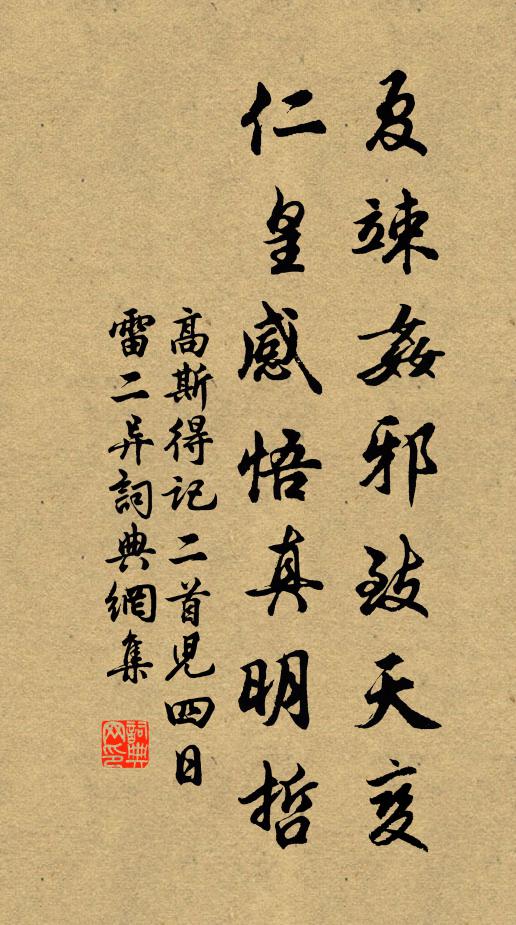 夏竦姦邪致天变
仁皇感悟真明哲
高斯得记二首儿四日
雷二异詞典網集
詞典网印